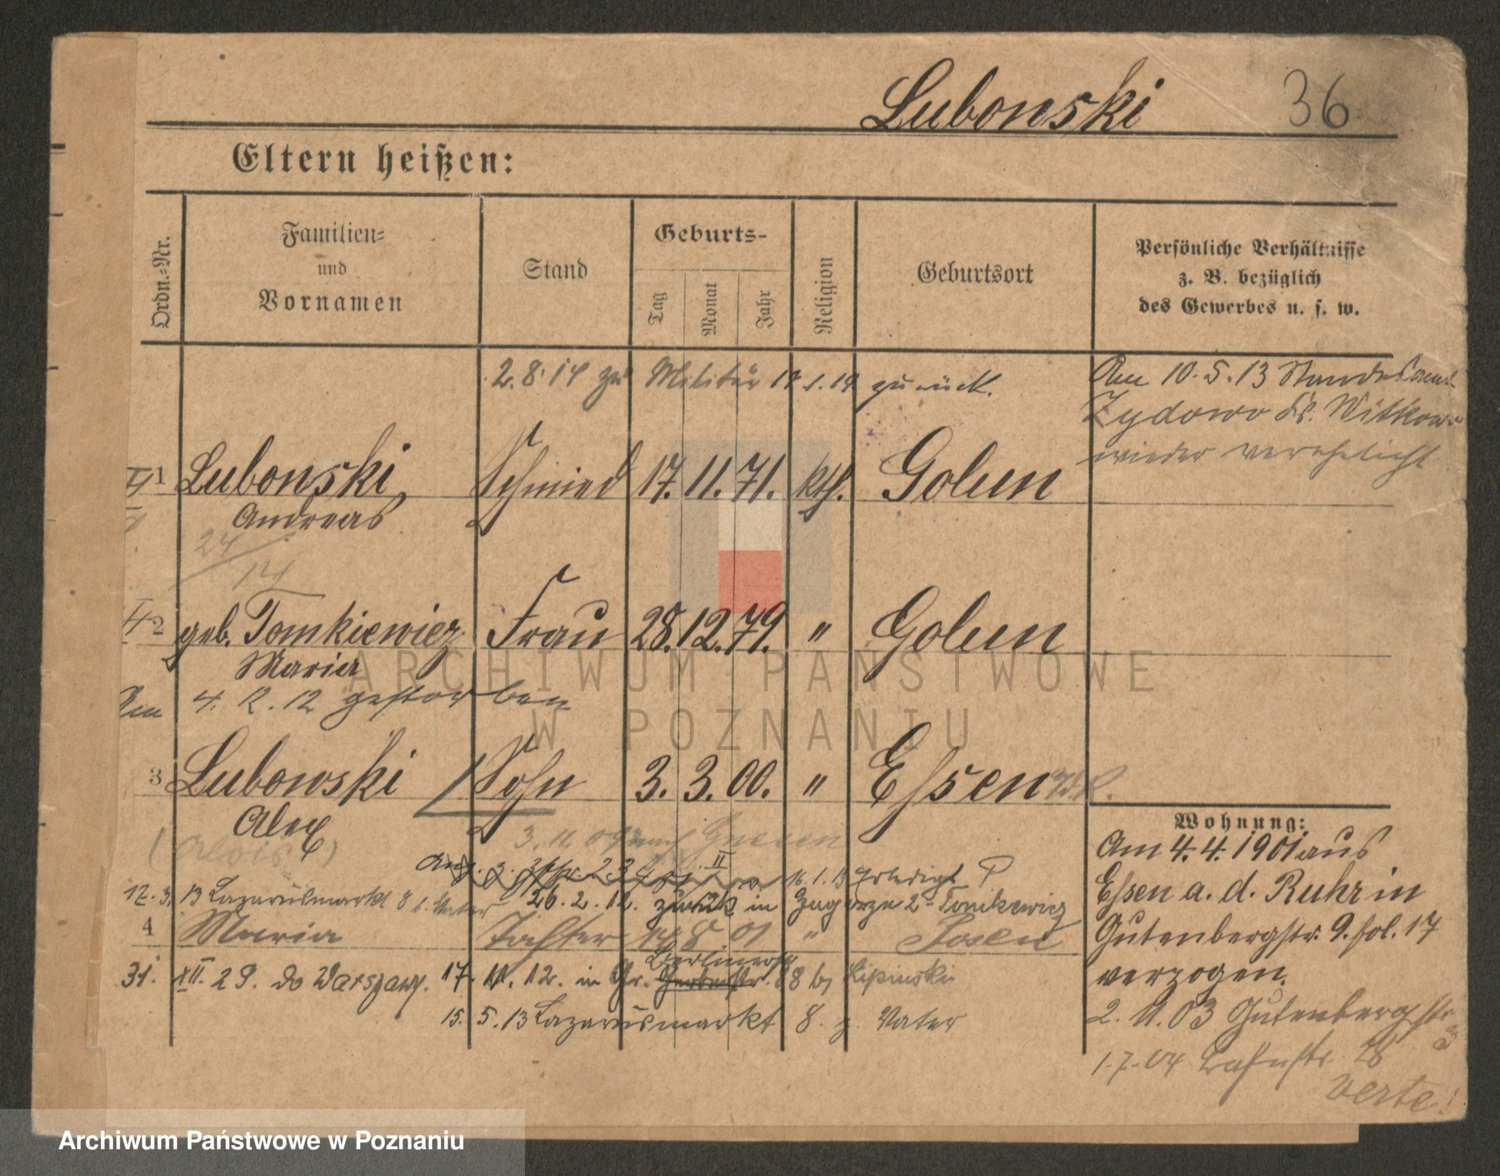 Lubonski 36
Eltern heißen:
Ordn.-Nr.
Familien-
und
Vornamen
Stand
Geburts-
Tag
Monat
Jahr
Religion
Geburtsort
Persönliche Verhältnisse
z. B. bezüglich
des Gewerbes u. s. w.
2.8.14 zu Militär 19 zurück.
Am 10.5.13 Standesamt
Zydowo Kr. Witkowo
wieder verehelicht
1 Lubonski, Schmied 17. 11. 71. kth. Golun
Andreas
24
14
2 geb. Tomkiewicz Frau 28. 12. 79. " Golun
Maria
Am 4. 12. 12 gestorben
3 Lubowski Sohn 3. 3. 00. " Essen
Alex
(Alois)
3. 11. 09 nach Gnesen
erledigt
26. 2. 12. zurück in
13 Lazarusmarkt 8 b. Vater
4 Maria Tochter 8. 01 " Posen
31. XII. 29. do Warszawy. 17. 11. 12. in Gr. Berlinerstr. 88 by Lipinski
15. 5. 13 Lazarusmarkt 8. z. Vater
Wohnung:
Am 4.4.1901 aus
Essen a. d. Ruhr in
Gutenbergstr. 9. fol. 17
verzogen.
2. 11. 03 Gutenbergstr
3
1.7.04
verte!
ARCHIWUM PAŃSTWOWE
W POZNANIU
Archiwum Państwowe w Poznaniu